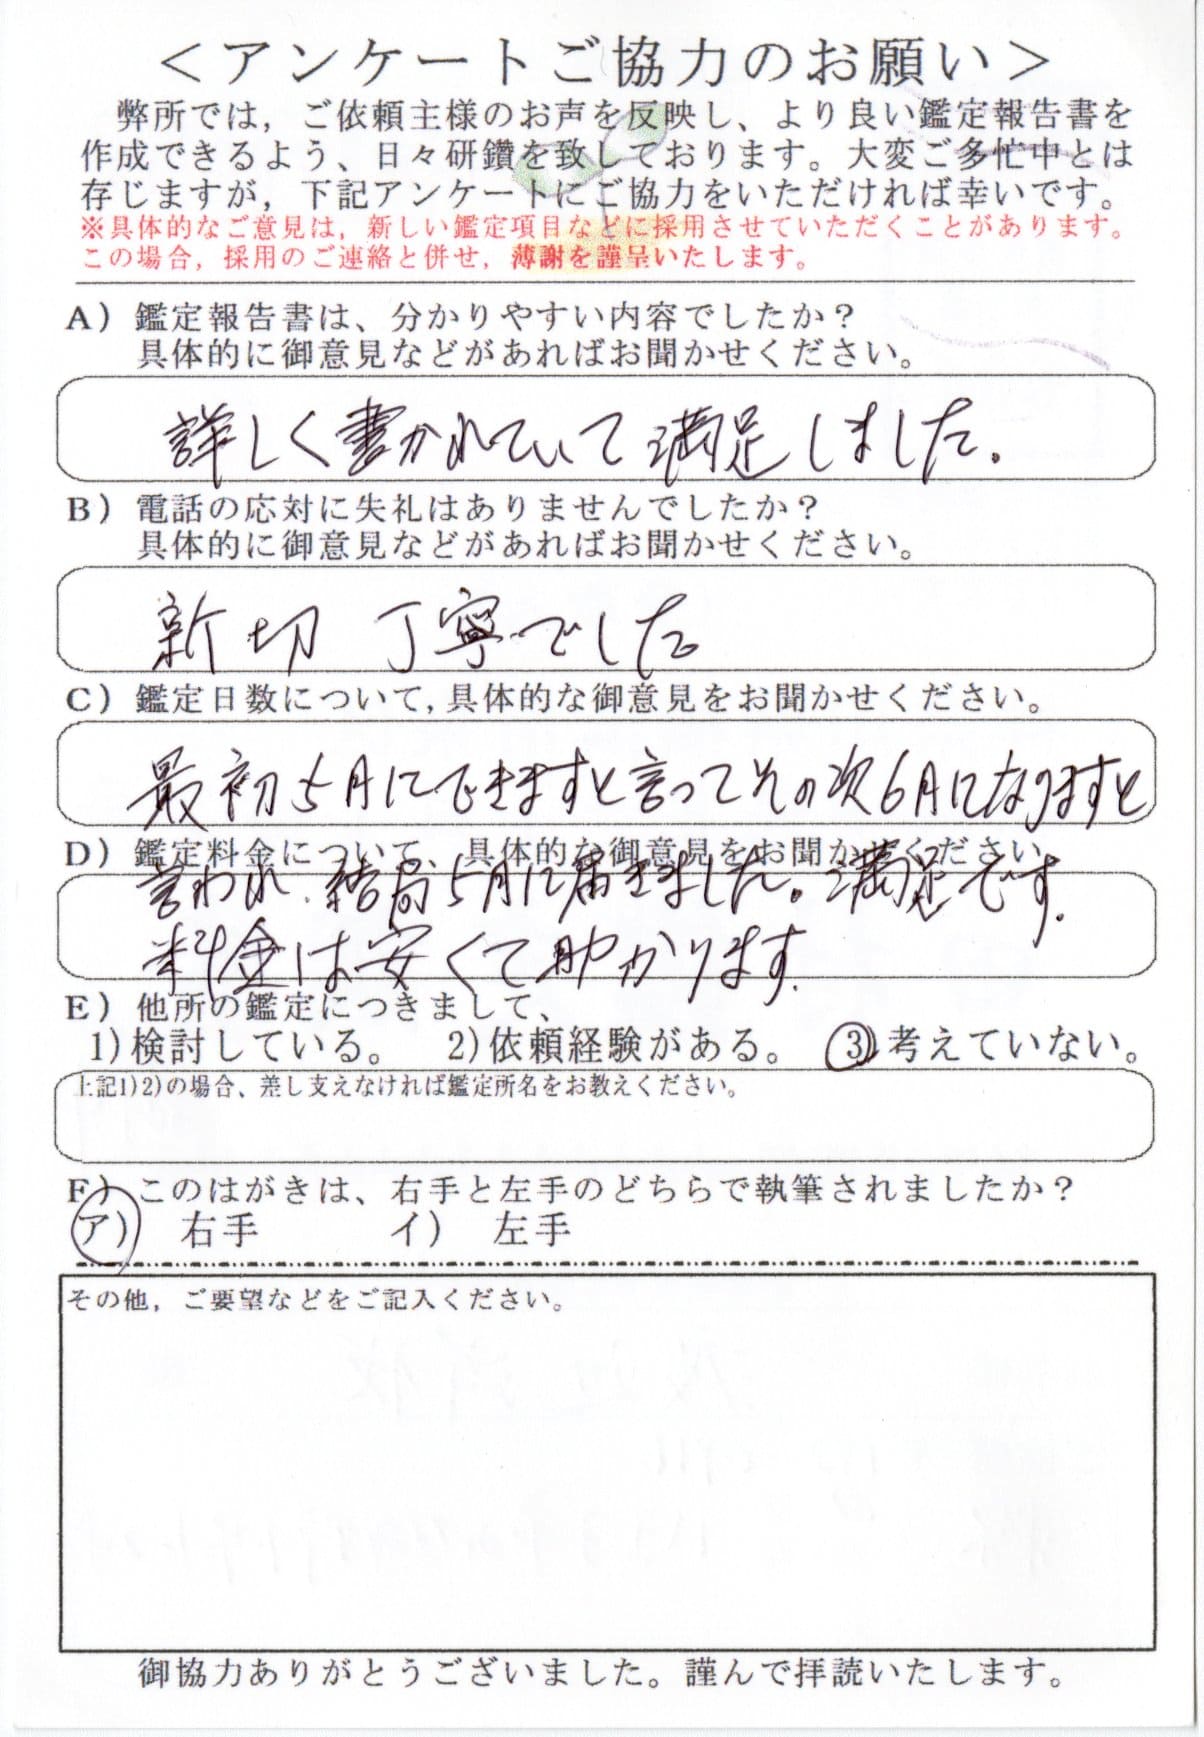 ＜アンケートご協力のお願い＞
弊所では，ご依頼主様のお声を反映し、より良い鑑定報告書を
作成できるよう、日々研鑽を致しております。大変ご多忙中とは
存じますが，下記アンケートにご協力をいただければ幸いです。
※具体的なご意見は，新しい鑑定項目などに採用させていただくことがあります。
この場合，採用のご連絡と併せ，薄謝を謹呈いたします。
A）鑑定報告書は、分かりやすい内容でしたか？
具体的に御意見などがあればお聞かせください。
詳しく書かれていて満足しました。
B）電話の応対に失礼はありませんでしたか？
具体的に御意見などがあればお聞かせください。
新切 丁寧でした
C）鑑定日数について，具体的な御意見をお聞かせください。
最初5月にできますと言ってその次6月になりますと
D）鑑定料金について、具体的な御意見をお聞かせください。
言われ、結局5月に届きました。満足です.
料金は安くて助かります.
E）他所の鑑定につきまして、
1)検討している。 2)依頼経験がある。 3)考えていない。
上記1)2)の場合、差し支えなければ鑑定所名をお教えください。
F）このはがきは、右手と左手のどちらで執筆されましたか？
ア） 右手 イ） 左手
その他，ご要望などをご記入ください。
御協力ありがとうございました。謹んで拝読いたします。